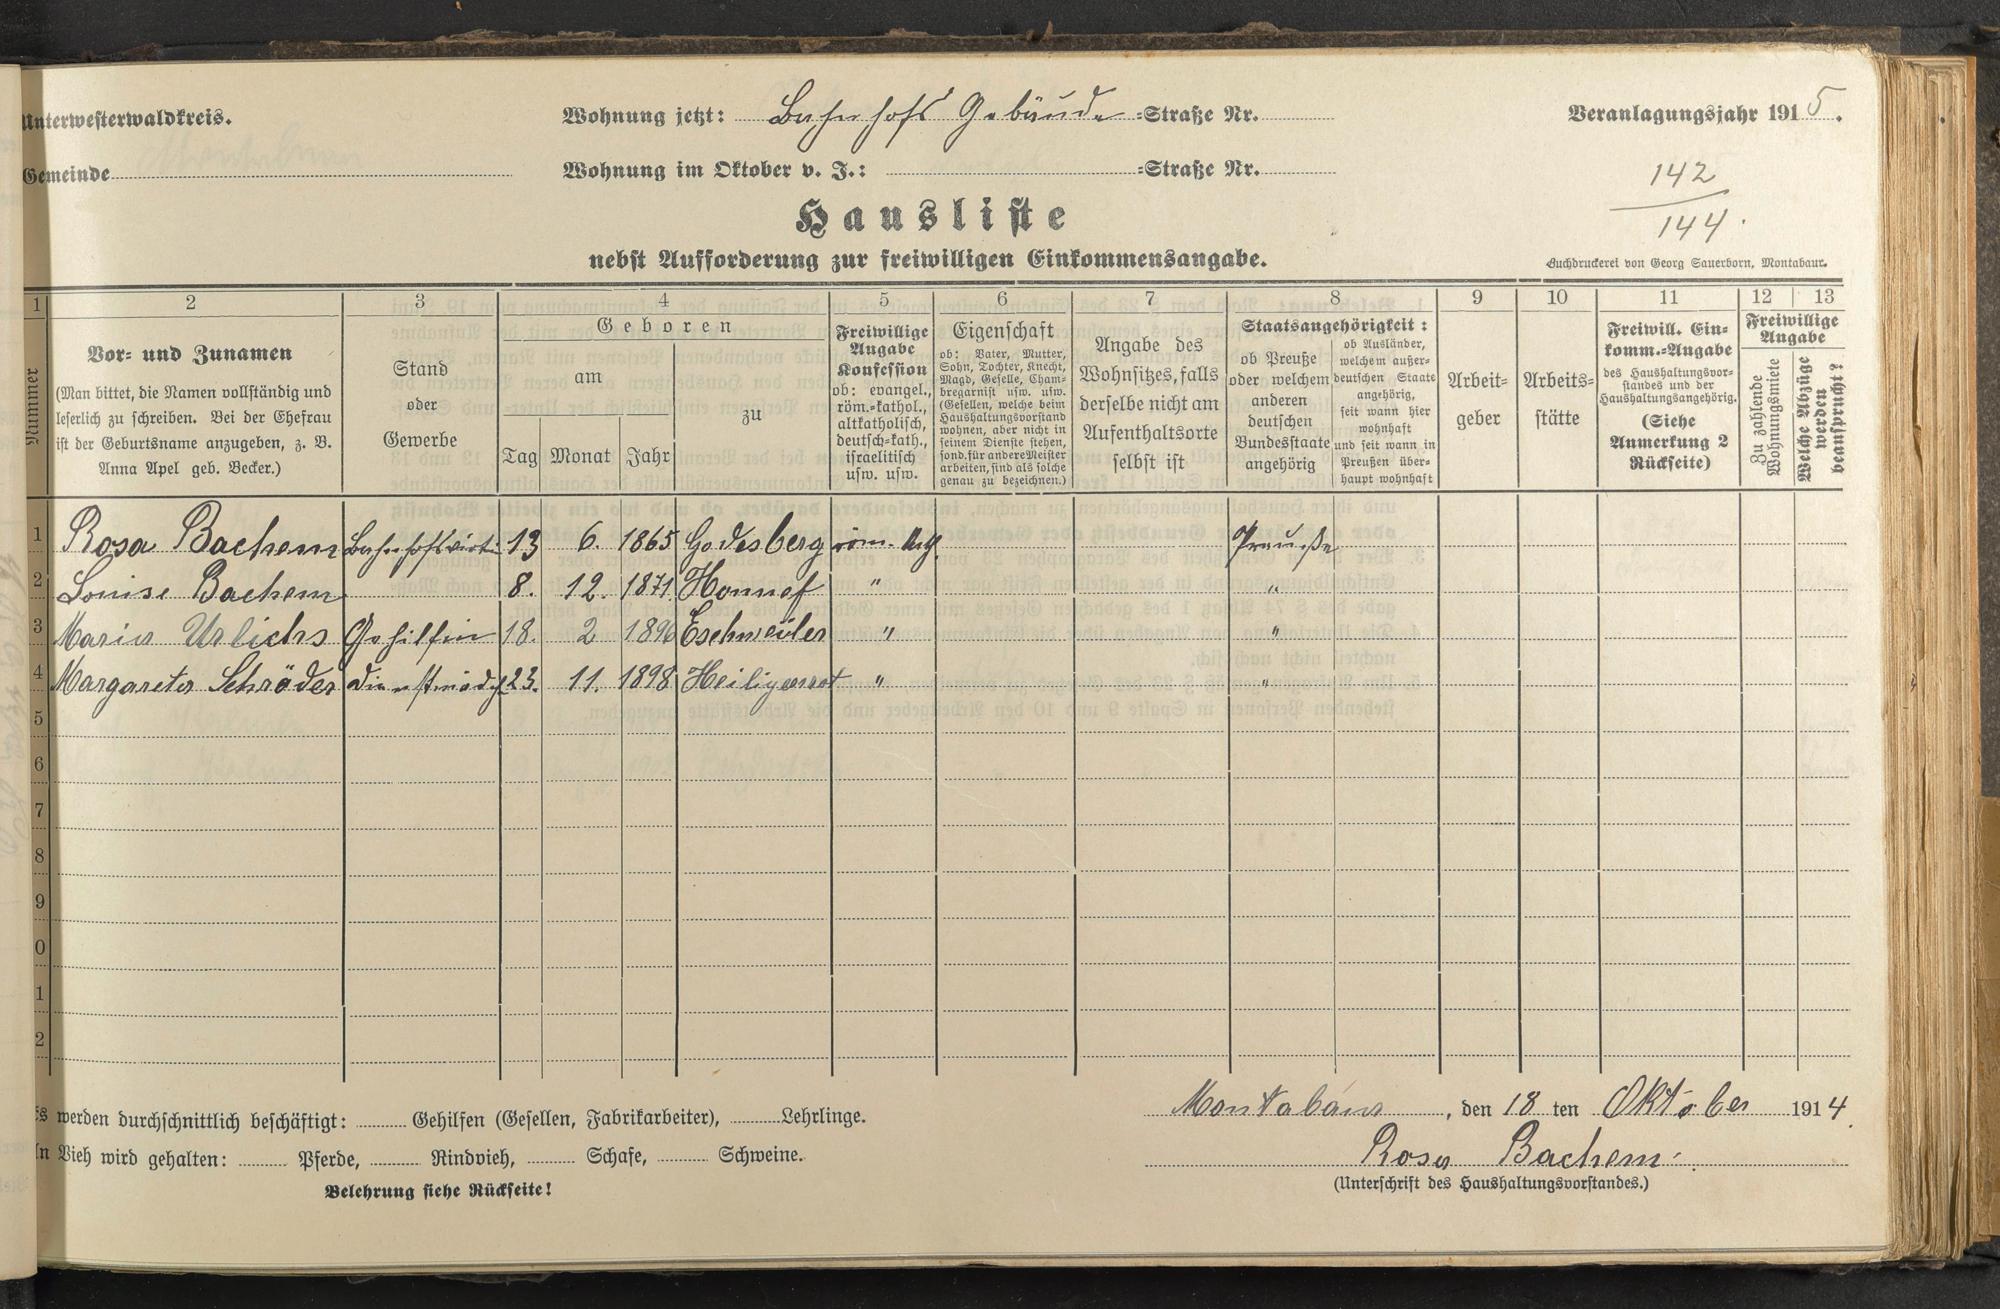 Unterwesterwaldkreis.
Wohnung jetzt: Bahnhofs Gebäude -Straße Nr.
Veranlagungsjahr 1915.
Gemeinde
Wohnung im Oktober v. J.: -Straße Nr.
142
144.
Hausliste
nebst Aufforderung zur freiwilligen Einkommensangabe.
Buchdruckerei von Georg Sauerborn, Montabaur.
1 2 3 4 5 6 7 8 9 10 11 12 13
Nummer
Vor- und Zunamen
(Man bittet, die Namen vollständig und
leserlich zu schreiben. Bei der Ehefrau
ist der Geburtsname anzugeben, z. B.
Anna Apel geb. Becker.)
Stand
oder
Gewerbe
Geboren
am
Tag Monat Jahr
zu
Freiwillige
Angabe
Konfession
ob: evangel.,
röm.-kathol.,
altkatholisch,
deutsch-kath.,
israelitisch
usw. usw.
Eigenschaft
ob: Vater, Mutter,
Sohn, Tochter, Knecht,
Magd, Geselle, Cham-
bregarnist usw. usw.
(Gesellen, welche beim
Haushaltungsvorstand
wohnen, aber nicht in
seinem Dienste stehen,
sond. für andere Meister
arbeiten, sind als solche
genau zu bezeichnen.)
Angabe des
Wohnsitzes, falls
derselbe nicht am
Aufenthaltsorte
selbst ist
Staatsangehörigkeit:
ob Preuße
oder welchem
anderen
deutschen
Bundesstaate
angehörig
ob Ausländer,
welchem außer-
deutschen Staate
angehörig,
seit wann hier
wohnhaft
und seit wann in
Preußen über-
haupt wohnhaft
Arbeit-
geber
Arbeits-
stätte
Freiwill. Ein-
komm.-Angabe
des Haushaltungsvor-
standes und der
Haushaltungsangehörig.
(Siehe
Anmerkung 2
Rückseite)
Freiwillige
Angabe
Zu zahlende
Wohnungsmiete
Welche Abzüge
werden
beansprucht?
1 Rosa Bachem Bahnhofswirtin 13 6. 1865 Godesberg röm. kath. Preuße
2 Louise Bachem 8. 12. 1871 Honnef " "
3 Maria Urlichs Gehilfin 18. 2 1896 Eschweiler " "
4 Margareta Schröder Dienstmädch 23. 11. 1898 Heiligenrot " "
5
6
7
8
9
0
1
2
Es werden durchschnittlich beschäftigt: Gehilfen (Gesellen, Fabrikarbeiter), Lehrlinge.
Montabaur, den 18 ten Oktober 1914.
An Vieh wird gehalten: Pferde, Rindvieh, Schafe, Schweine.
Rosa Bachem.
Belehrung siehe Rückseite!
(Unterschrift des Haushaltungsvorstandes.)